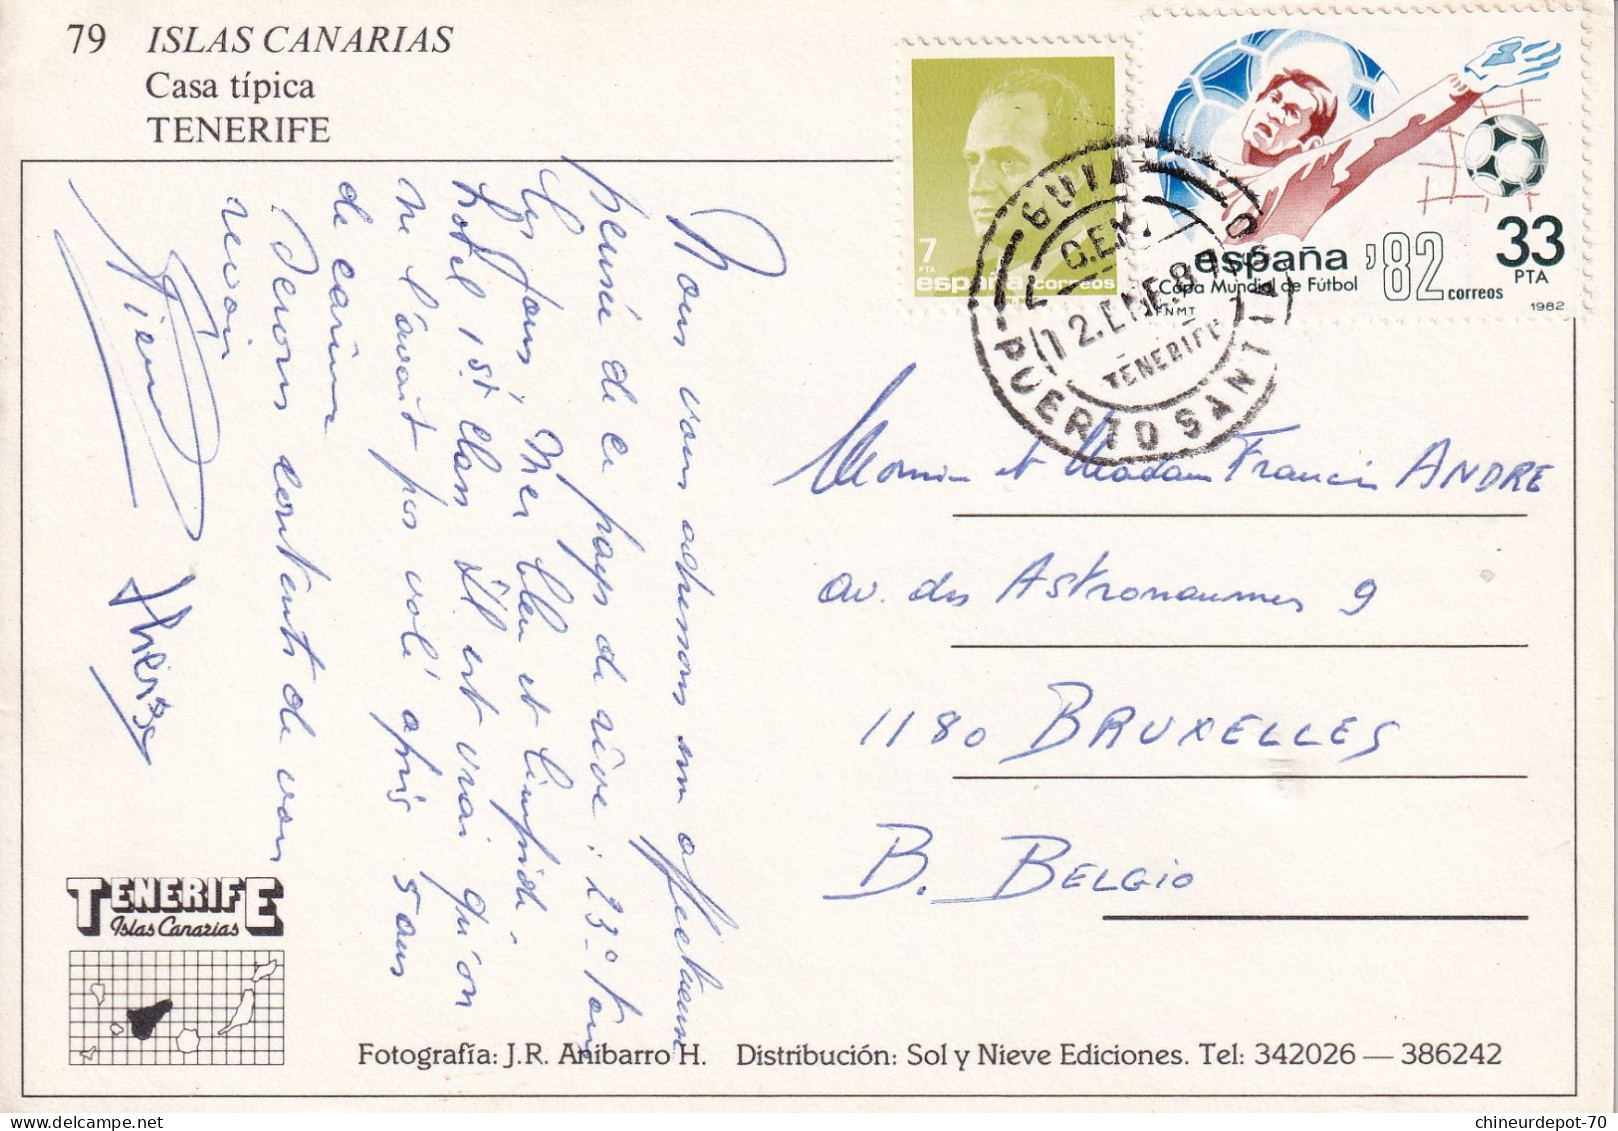 79 ISLAS CANARIAS
Casa típica
TENERIFE
7
PTA
españa correos
españa '82
Copa Mundial de Fútbol
correos
33
PTA
1982
FNMT
GUIA
GEN.
12. ENE. 8
TENERIFE
PUERTO SANTIA
Nous vous adressons une affectueuse
pensée de ce pays de rêve : 23° tous
les jours, Mer bleu et limpide.
Hotel 1st class Il est vrai qu'on
ne l'avait pas volé après 5 ans
de
Serons contents de vous
revoir
Pierre
Thérèse
et Madame Francis ANDRE
av. des Astronaumes 9
1180 BRUXELLES
B. BELGIO
TENERIFE
Islas Canarias
Fotografía: J.R. Anibarro H. Distribución: Sol y Nieve Ediciones. Tel: 342026 — 386242
chineurdepot-70